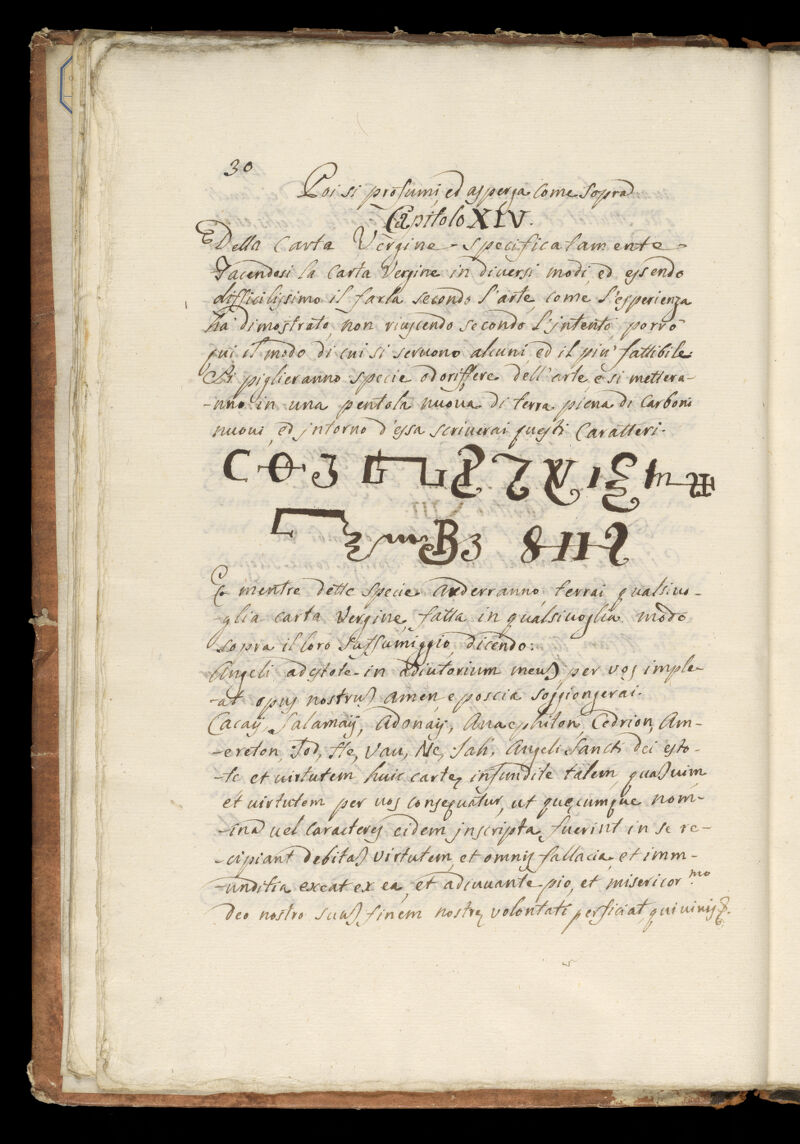 30
Poi si profumi ed asperga come sopra
Capitolo XIV.
Della Carta Vergine specificatamente.
Facendosi la Carta Vergine in diversi modi, ed essendo
difficilissimo il farla secondo l'arte, come l'esperienza
ha dimostrato, non riuscendo secondo l'jntento, porrò
qui il modo di cui si servono alcuni, ed il piu' fattibile
Si piglieranno specie odoriffere dell'arte, e si mettera-
-nno in una pentola nuova di terra piena di Carboni
nuovi, ed jntorno d'essa scriverai questi Caratteri.
E mentre dette specie arderranno terrai qualsivo-
-glia carta Vergine, fatta in qualsivoglia modo
sopra il loro suffumiggio, dicendo:
Angeli adestote in adiutorium meuz per vos imple-
-at opus nostruz amen e poscia soggiongerai.
Cacay, Salamay, Adonay, Anaephiton, Cedrion, Am-
-ereton Jod, He, Vau, He, Jah, Angeli Sancti dei esto-
-te et virtutem huic carte, infundite talem, quaz vim
et virtutem per vos consequatur, ut quecumque nom-
-ina vel caracteres eidem jnscripta fuerint in se re-
-cipiant debitaz virtutem, et omnis fallacia, et imm-
-unditia exeat ex ea, et adiuvante pio, et misericor.mo
deo nostro suaz finem nostre, volontati perficiat, qui vivis